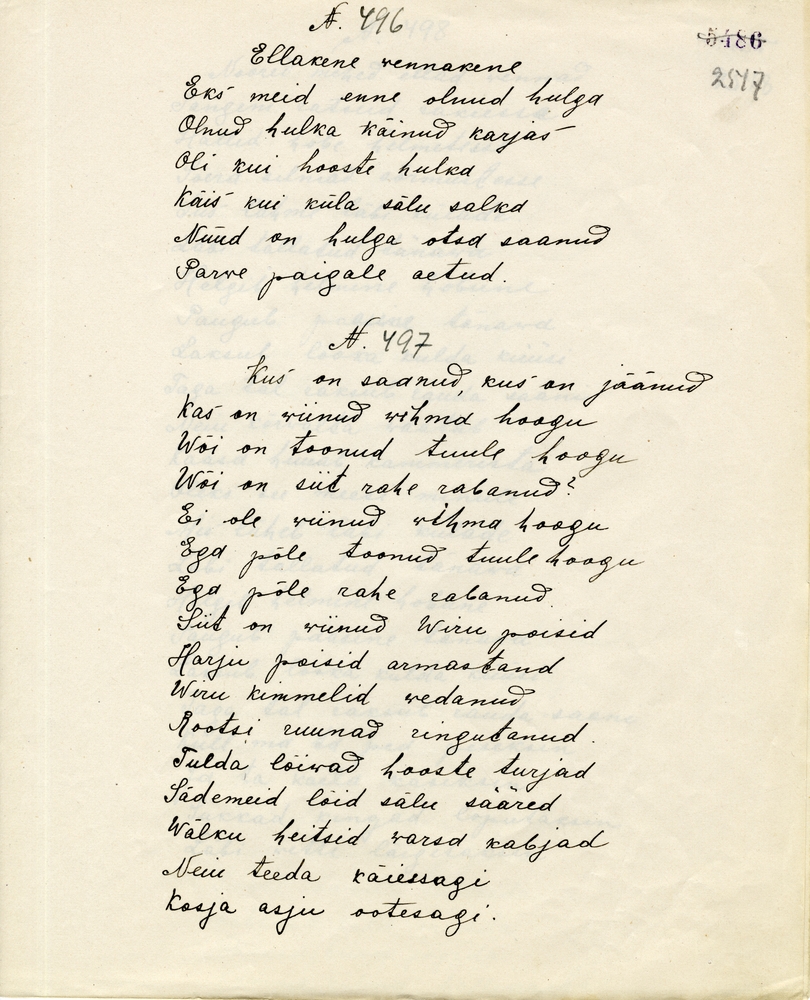 N. 496
5486
2547
Ellakene wennakene
Eks meid enne olnud hulga
Olnud hulka käinud karjas
Oli kui hooste hulka
Käis kui küla sälu salka
Nüüd on hulga otsa saanud
Parwe paigale aetud.
N. 497
Kus on saanud, kus on jäänud
Kas on wiinud wihma hoogu
Wõi on toonud tuule hoogu
Wõi on siit rahe rabanud?
Ei ole wiinud wihma hoogu
Ega põle toonud tuule hoogu
Ega põle rahe rabanud
Siit on wiinud Wiru poisid
Harju poisid armastand
Wiru kimmelid wedanud
Rootsi ruunad ringutanud.
Tulda lõiwad hooste turjad
Sädemeid lõid sälu sääred
Wälku heitsid warsa kabjad
Neiu teeda käiessagi
Kosja asju ootesagi.